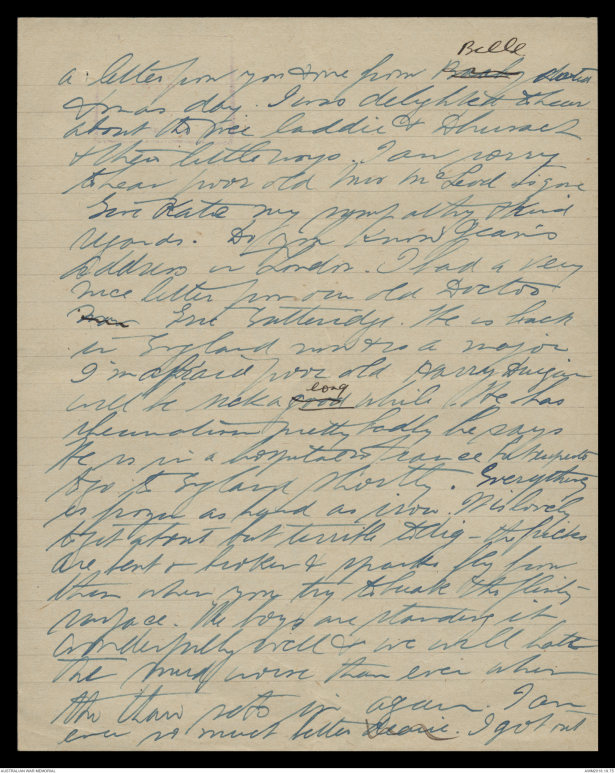 Belle
a letter from you & one from dated
Xmas day. I was delighted to hear
about the nice laddie &
& their little ways. I am sorry
to hear poor old Mrs McLeod is gone
Give Katie my sympathy & kind
regards. Do you know Jean's
address in London. I had a very
nice letter from our old Doctor
Eric Gutteridge. He is back
in England now & is a major
I'm afraid poor old Harry
long
will be sick a good while. He has
rheumatism pretty badly he says
He is in a hospital in France but expects
to go to England shortly. Everything
is frozen as hard as iron. It is lovely
to get about but terrible to dig - the picks
are bent & broken & sparks fly from
them when you try to break the flinty
surface. The boys are standing it
wonderfully well & we will hate
the mud worse than ever when
the thaw sets in again. I am
ever so much better Dearie. I got out
AUSTRALIAN WAR MEMORIAL